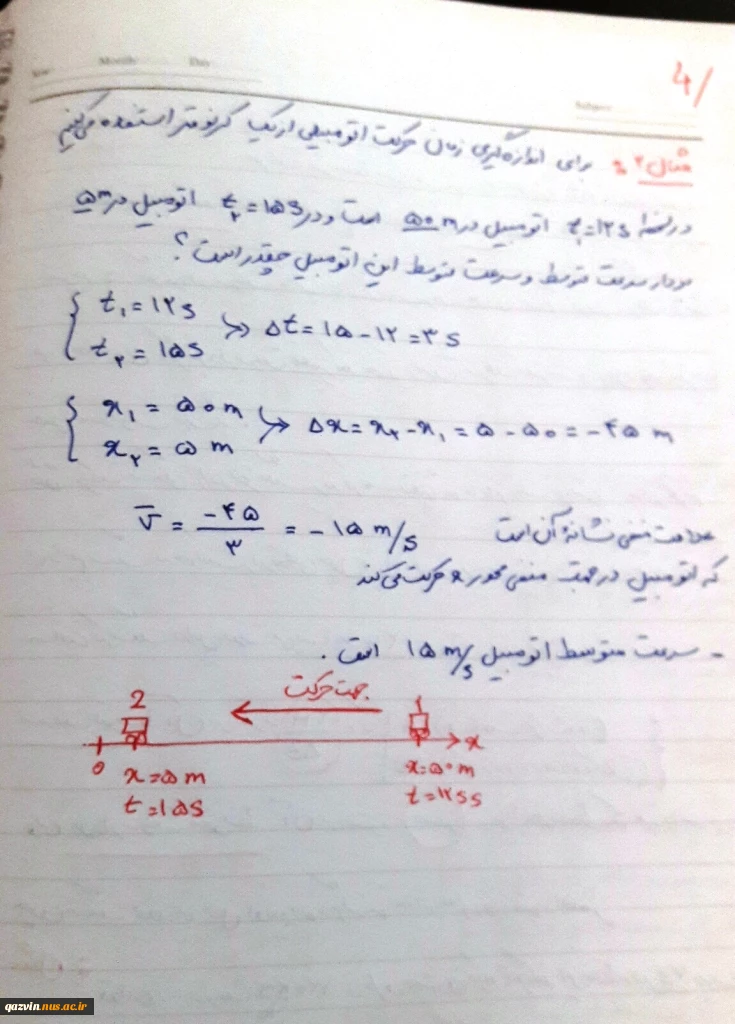 Year Month Day
Subject
4/
مثال ۲: برای اندازه‌گیری زمان حرکت اتومبیلی از یک کرنومتر استفاده می‌کنیم
در لحظه t₁=۱۲s اتومبیل در ۵۰m است و در t₂=۱۵s اتومبیل در ۵m
بردار سرعت متوسط و سرعت متوسط این اتومبیل چقدر است؟
t₁ = ۱۲s
t₂ = ۱۵s ↪ Δt = ۱۵ - ۱۲ = ۳s
x₁ = ۵۰ m
x₂ = ۵ m ↪ Δx = x₂ - x₁ = ۵ - ۵۰ = -۴۵ m
v̄ = -۴۵/۳ = -۱۵ m/s علامت منفی نشانهٔ آن است
که اتومبیل در جهت منفی محور x حرکت می‌کند
- سرعت متوسط اتومبیل ۱۵ m/s است.
جهت حرکت
2 ۱
x
0 x=۵m x=۵۰m
t=۱۵s t=۱۲s
qazvin.nus.ac.ir